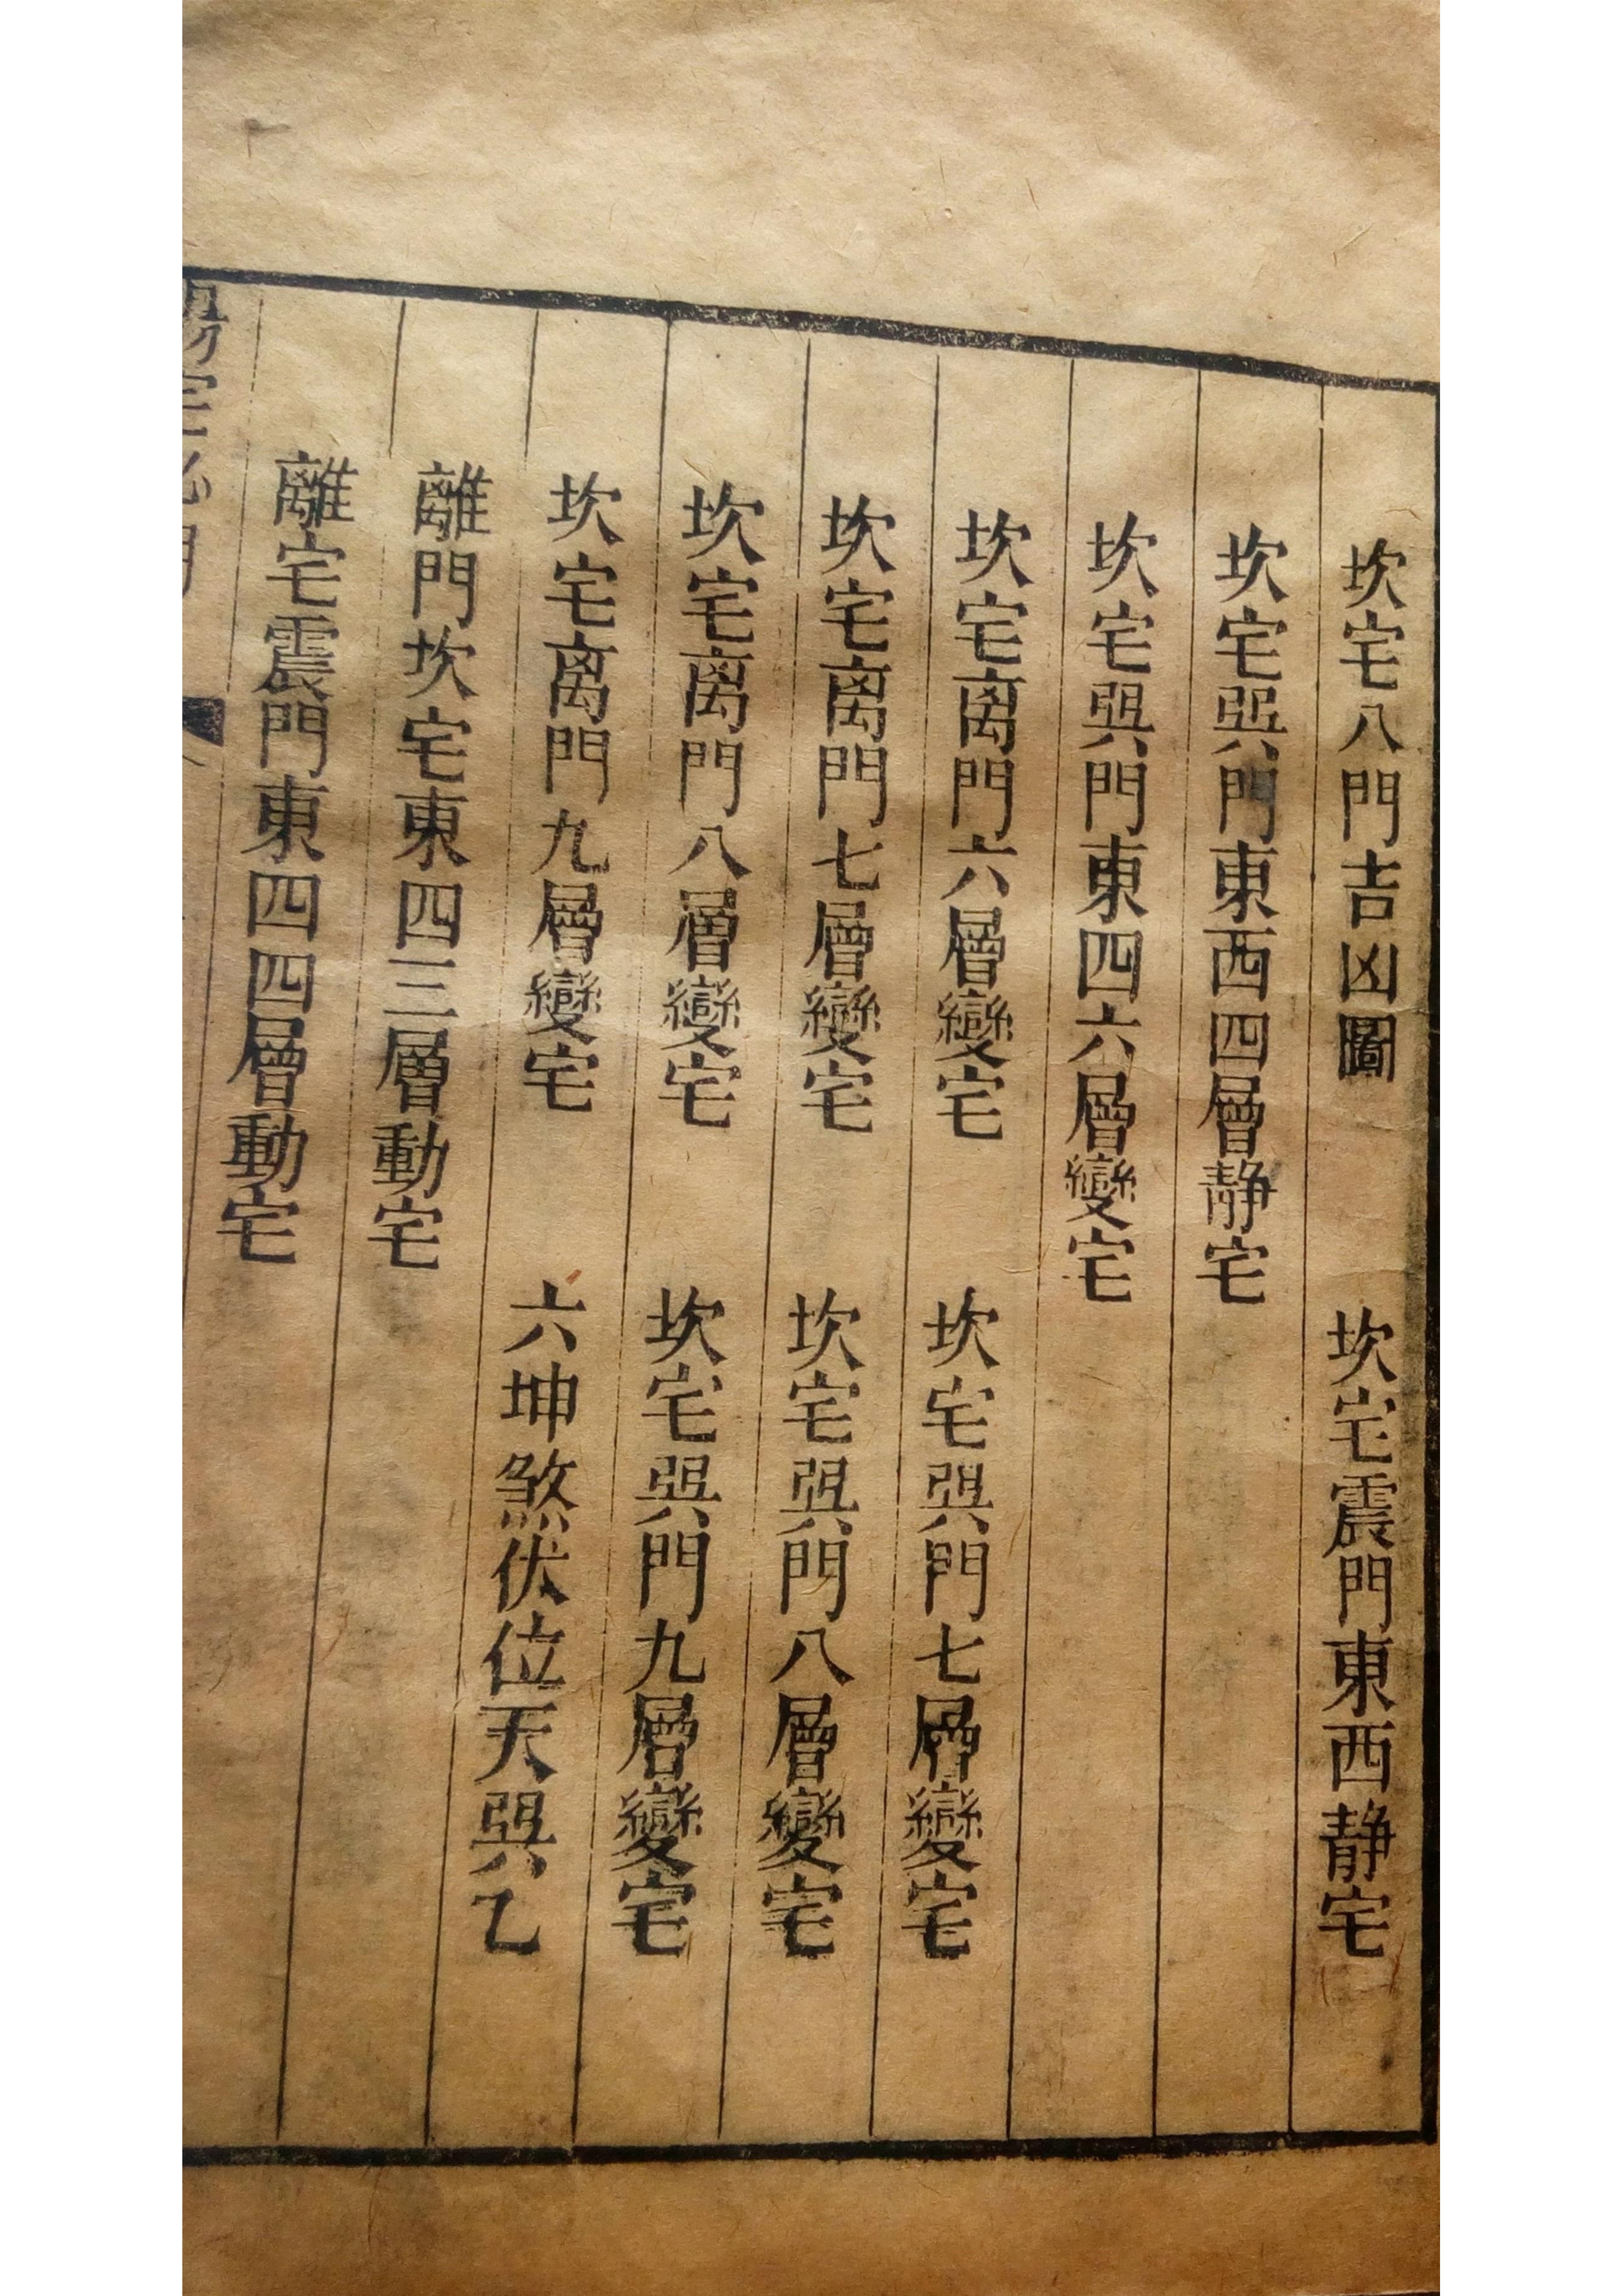 坎宅八門吉凶圖　坎宅震門東西静宅
坎宅巽門東西四層静宅
坎宅巽門東四六層變宅
坎宅离門六層變宅　坎宅巽門七層變宅
坎宅离門七層變宅　坎宅巽門八層變宅
坎宅离門八層變宅　坎宅巽門九層變宅
坎宅离門九層變宅　六坤煞伏位天巽乙
離門坎宅東四三層動宅
離宅震門東四四層動宅